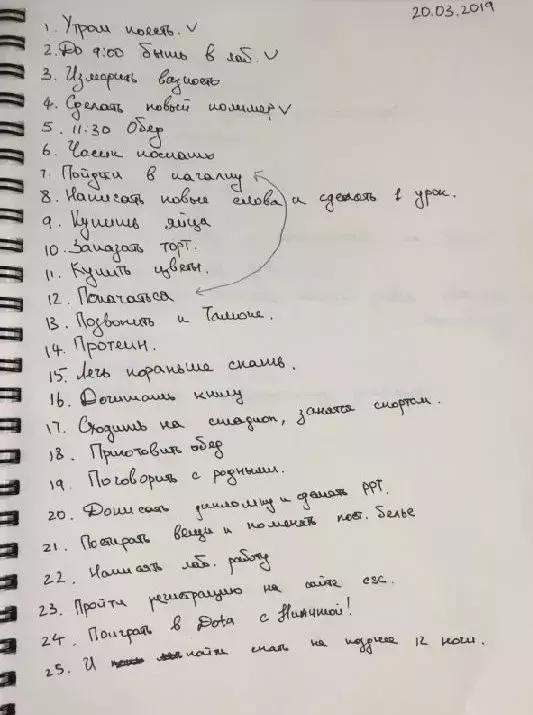 20.03.2019
1. Утром поесть. ✓
2. До 9:00 быть в лаб. ✓
3. Измерить вязкость
4. Сделать новый полимер ✓
5. 11:30 Обед
6. Часик поспать
7. Пойти в качалку
8. Написать новые слова и сделать 1 урок.
9. Купить яйца
10. Заказать торт.
11. Купить цветы.
12. Покачаться
13. Позвонить и
14. Протеин.
15. Лечь пораньше спать.
16. Дочитать книгу
17. Сходить на стадион, занятся спортом.
18. Приготовить обед
19. Поговорить с родными.
20. Дописать дипломку и сделать PPT.
21. Постирать вещи и поменять пост. белье
22. Написать лаб. работу
23. Пройти регистрацию на сайте csc.
24. Поиграть в Dota с
25. И пойти спать не позднее 12 ночи.